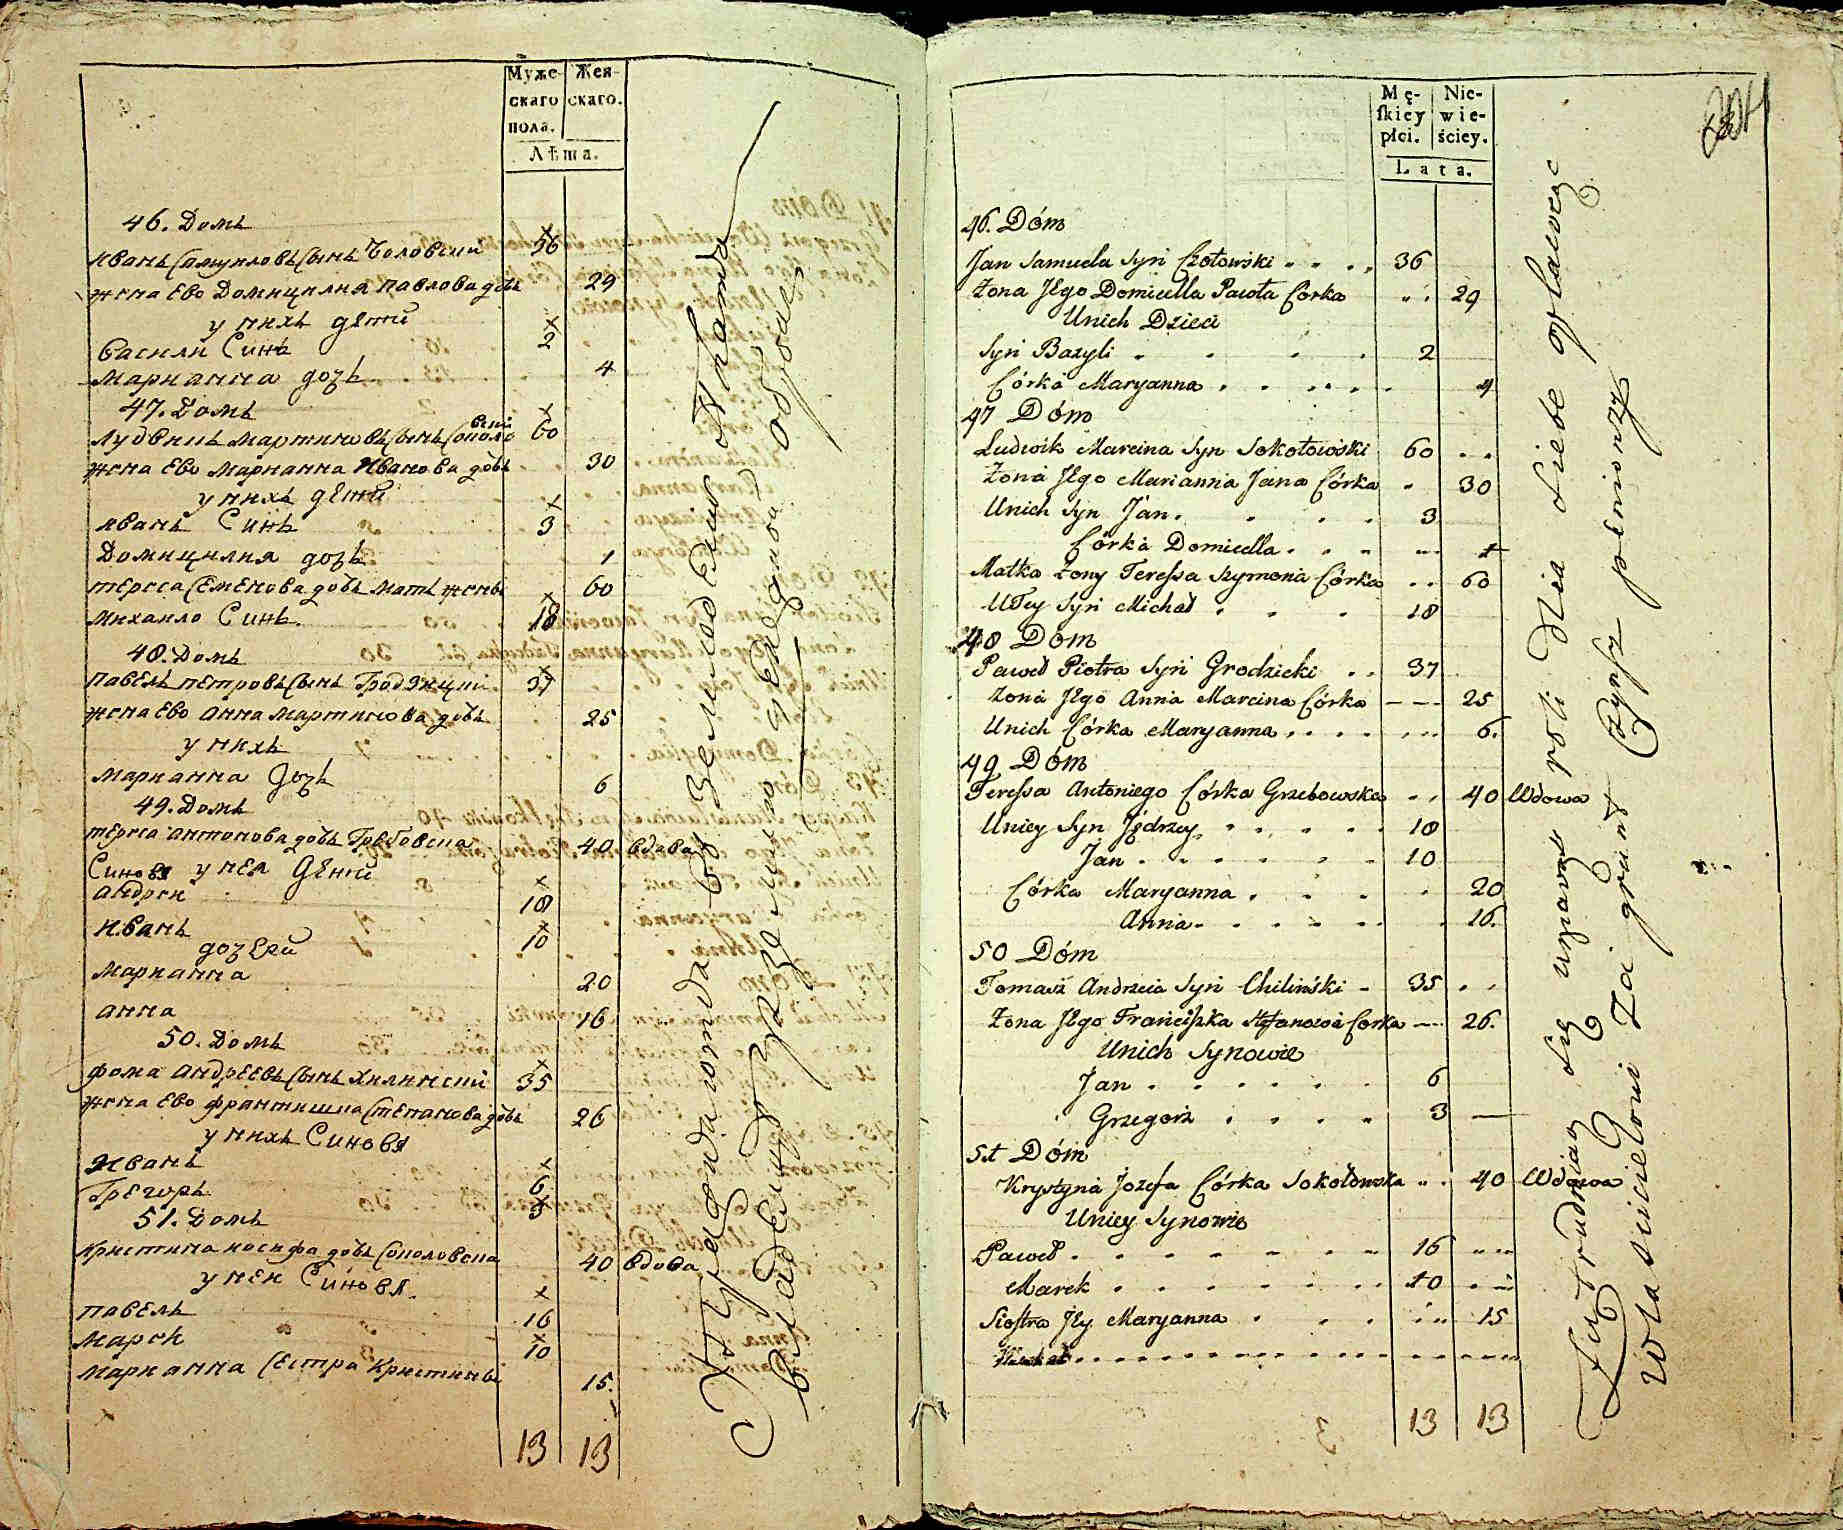 Муже-
скаго
пола.
Жен-
скаго.
Лѣта.
46. Домъ
иванъ Самуиловъ Сынъ Чоловский 36
жена Ево Домицилия павлова дочь 29
у нихъ дети
василй Синъ 2
марианна дочь 4
47. Домъ
Лудвикъ мартиновъ Сынъ Соколовский 60
жена Ево марианна Иванова дочь 30
у нихъ дети
иванъ Синъ 3
Домицилия дочь 1
тереса Семенова дочь мать жены 60
михаило Синъ 18
48. Домъ
павелъ петровъ Сынъ Гродзицкий 37
жена Ево анна мартинова дочь 25
у нихъ
марианна дочь 6
49. Домъ
тереса антонова дочь Гребовска 40 вдова
Синовя у нея дети
андреи 18
иванъ 10
дочери
марианна 20
анна 16
50. Домъ
фома андреевъ Сынъ хилинский 35
жена Ево франтишка Степанова дочь 26
у нихъ Синовя
иванъ 6
Грегоръ 3
51. Домъ
кристина иосифа дочь Соколовска 40 вдова
у неи Синовя
павелъ 16
марки 10
марианна Сестра кристины 15.
13 13
владелцу за землю денежной оброкъ
Mę-
skiey
płci.
Nie-
wie-
ściey.
Lata.
46. Dóm
Jan Samuela Syn Czołowski 36
Żona Jego Domicella Pawła Córka 29
Unich Dzieci
Syn Bazyli 2
Córka Maryanna 4
47 Dóm
Ludwik Marcina Syn Sokołowski 60
Żona Jego Marianna Jana Córka 30
Unich Syn Jan 3
Córka Domicella 1
Matka Żony Teressa Szymona Córka 60
UTey Syn Michał 18
48 Dóm
Paweł Piotra Syn Grodzicki 37
Żona Jego Anna Marcina Córka 25
Unich Córka Maryanna 6.
49 Dóm
Teressa Antoniego Córka Grzebowska 40 Wdowa
Uniey Syn Jędrzey 18
Jan 10
Córka Maryanna 20
Anna 16.
50 Dóm
Tomasz Andrzeia Syn Chiliński 35
Żona Jego Franciszka Stefanowa Corka 26.
Unich Synowie
Jan 6
Grzegorz 3
51 Dóm
Krystyna Jozefa Córka Sokołowska 40 Wdowa
Uniey Synowie
Paweł 16
Marek 10
Siostra Jey Maryanna 15
13 13
Zatrudniaią się uprawą roli Dla siebie opłacaiąc
Właścicielowi Za grunt Czynsz pieniężny